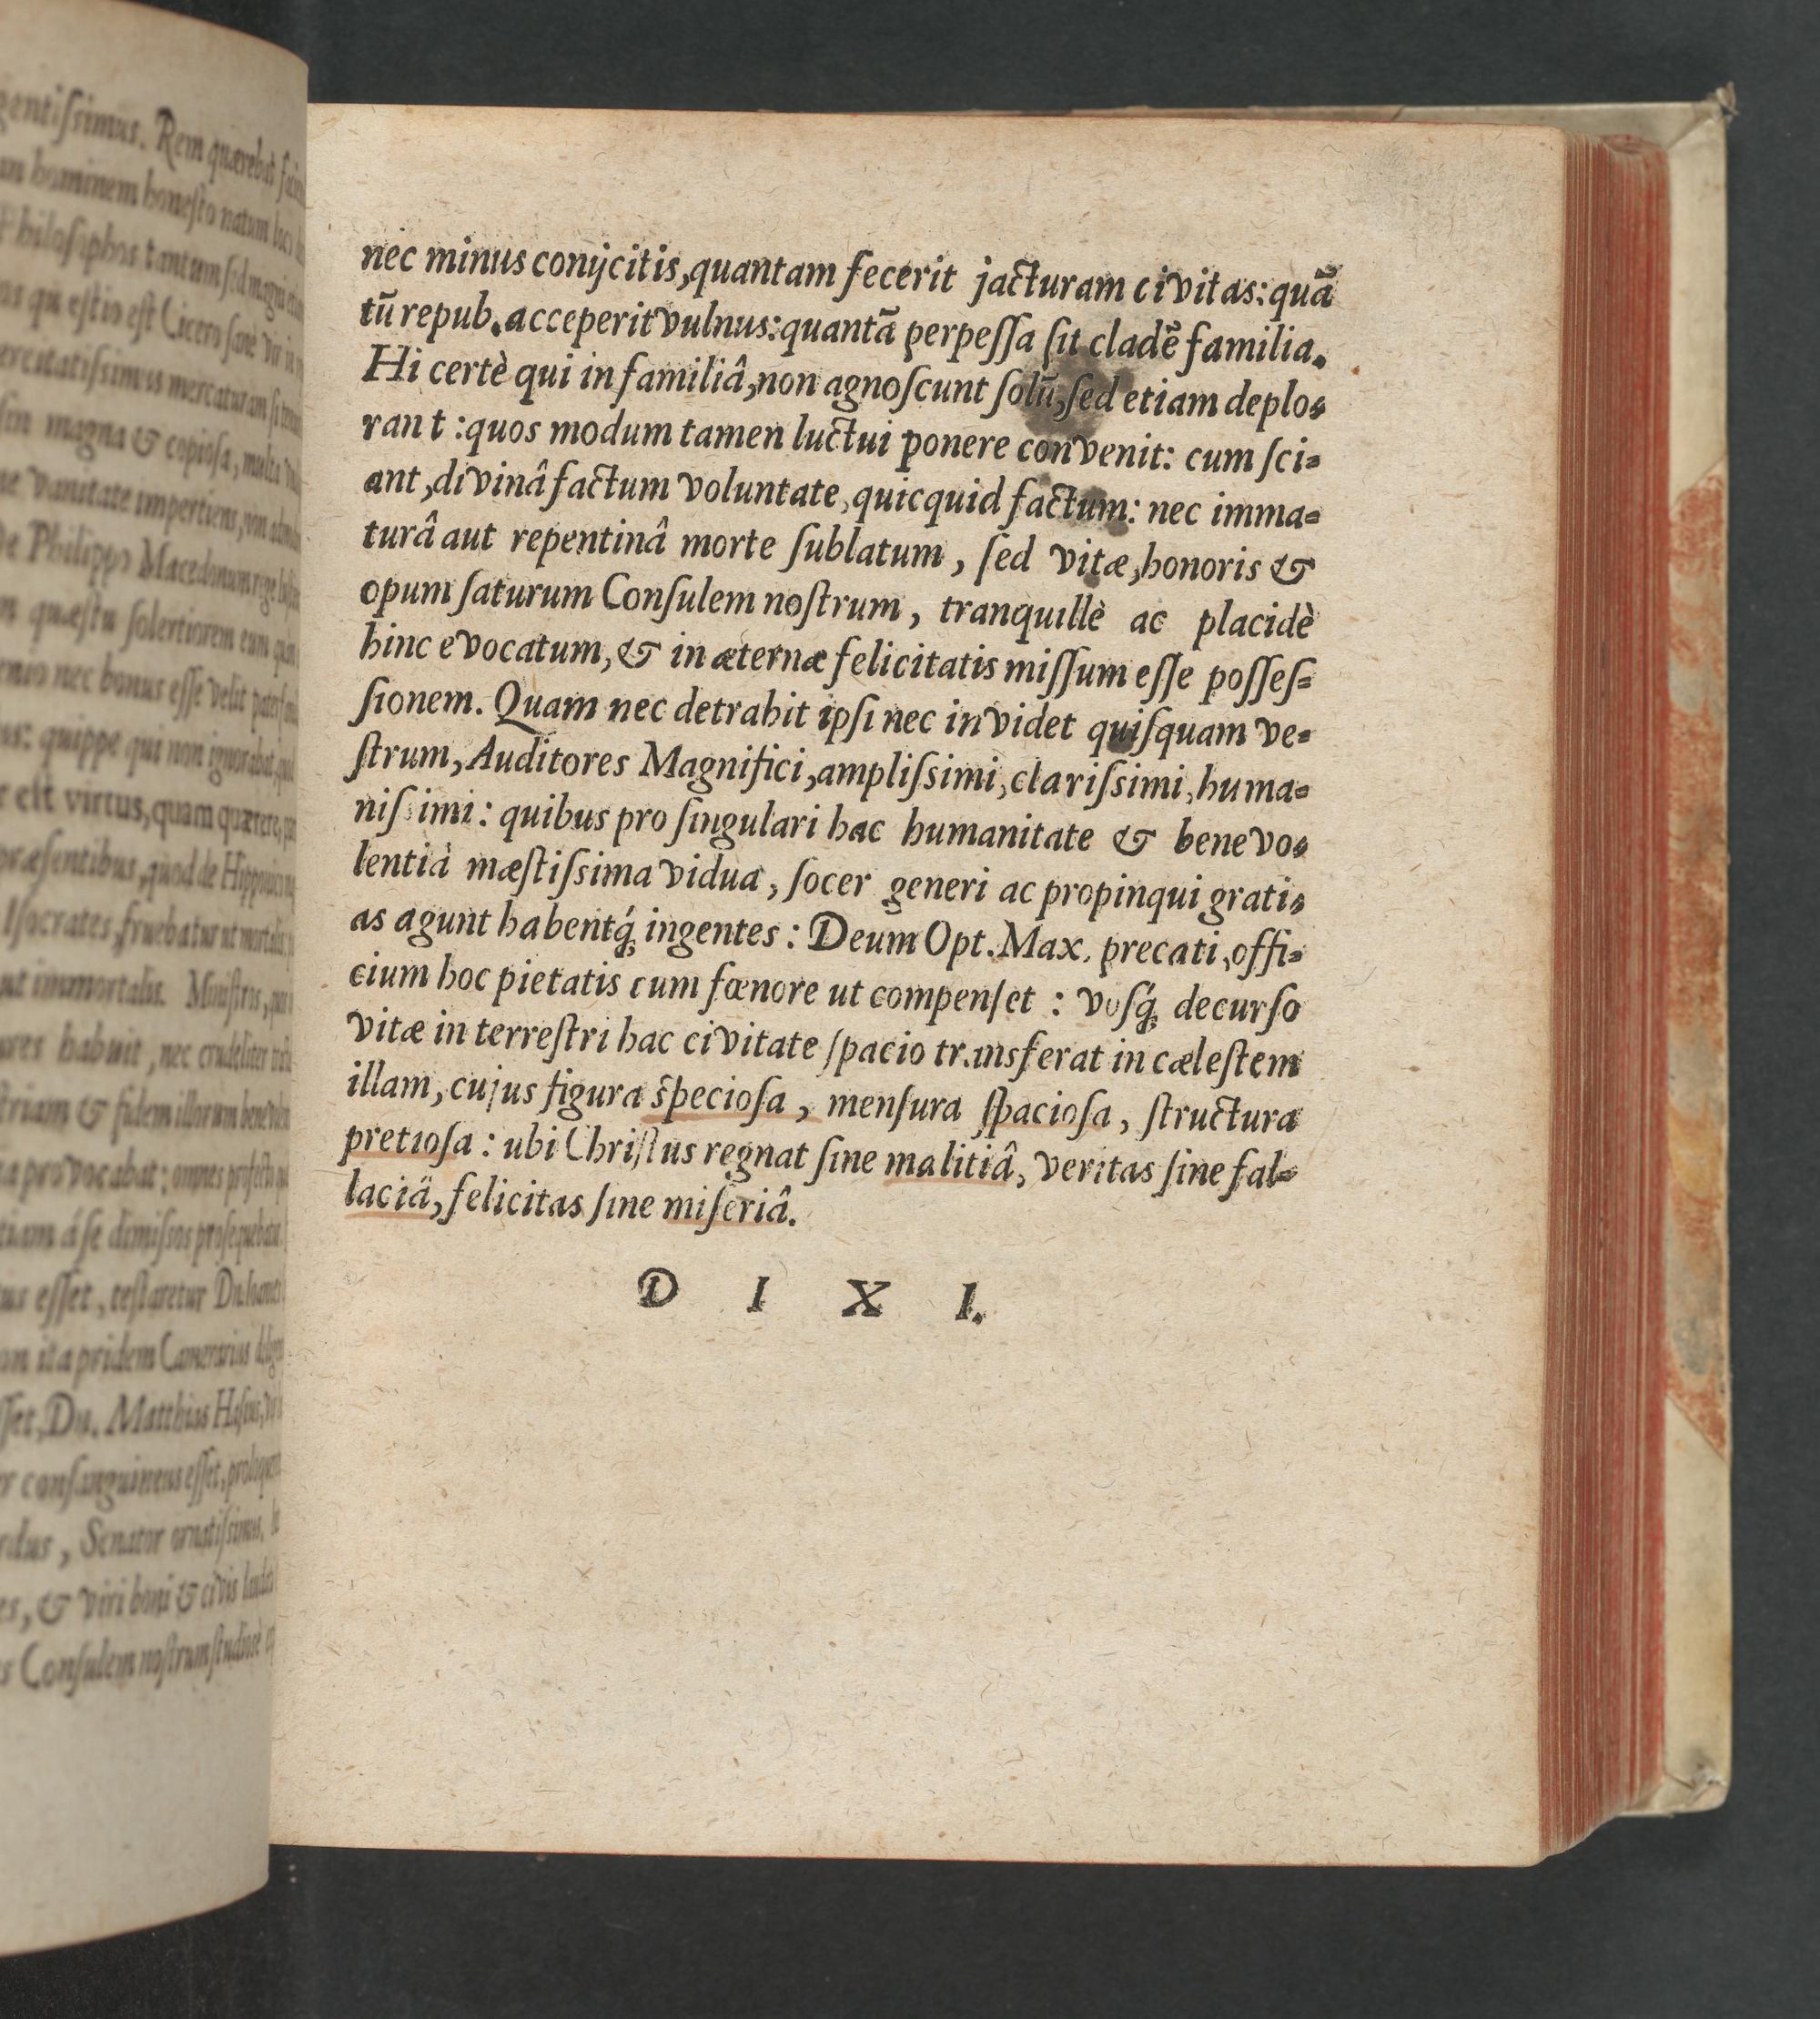 gentiſsimus. Rem quærebat
hominem honeſto natum loco
Philoſophos tantum ſed magni
qu eſtio eſt Cicero ſane vir
ercitatiſsimus mercaturam ſi
magna & copioſa, multa
vanitate impertiens, non
De Philippo Macedonum rege
quæſtu ſolertiorem eam
nec bonus eſſe velit
quippe qui non ignorabat,
eſt virtus, quam quærere,
præſentibus, quod de
Iſocrates, fruebatur ut
ut immortalis. Miniſtris,
habuit, nec crudeliter
& fidem illorum
provocabat: omnes profecto
á ſe dimiſsos proſequebatur
eſſet, teſtaretur Dn.
ita pridem Camerarius
Dn. Matthias
conſanguineus eſſet,
Senator ornatiſsimus,
& viri boni & civis
Conſulem noſtrum ſtudiosè
nec minus conijcitis, quantam fecerit jacturam civitas: quā
tū repub. acceperit vulnus: quantā perpeſſa ſit cladē familia.
Hi certè qui in familiâ, non agnoſcunt ſolū, ſed etiam deplo=
rant: quos modum tamen luctui ponere convenit: cum ſci=
ant, divinâ factum voluntate, quicquid factum: nec imma=
turâ aut repentinâ morte ſublatum, ſed vitæ, honoris &
opum ſaturum Conſulem noſtrum, tranquillè ac placidè
hinc evocatum, & in æternæ felicitatis miſſum eſſe poſſeſ=
ſionem. Quam nec detrahit ipſi nec invidet quiſquam ve=
ſtrum, Auditores Magnifici, ampliſsimi, clariſsimi, huma=
niſsimi: quibus pro ſingulari hac humanitate & benevo=
lentiâ mæſtiſsima vidua, ſocer generi ac propinqui grati=
as agunt habentq́; ingentes: Deum Opt. Max. precati, offi=
cium hoc pietatis cum fœnore ut compenſet: voſq́; decurſo
vitæ in terreſtri hac civitate ſpacio transferat in cæleſtem
illam, cujus figura ſpecioſa, menſura ſpacioſa, ſtructura
pretioſa: ubi Chriſtus regnat ſine malitiâ, veritas ſine fal=
laciâ, felicitas ſine miſeriâ.
D I X I.